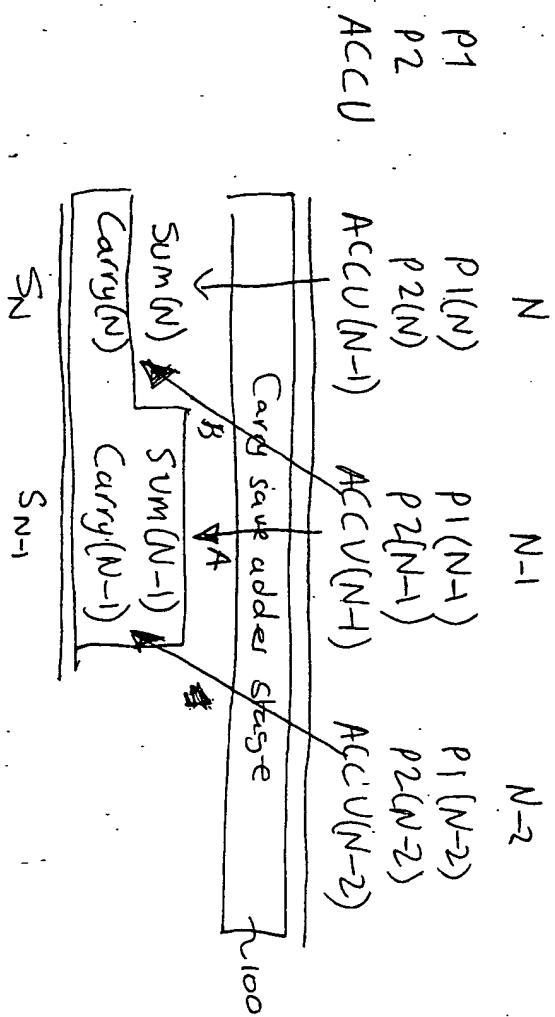 N N-1 N-2
P1 P1(N) P1(N-1) P1(N-2)
P2 P2(N) P2(N-1) P2(N-2)
ACCU ACCU(N-1) ACCU(N-1) ACCU(N-2)
Carry save adder stage 100
B A
Sum(N) Sum(N-1)
Carry(N) Carry(N-1)
SN SN-1